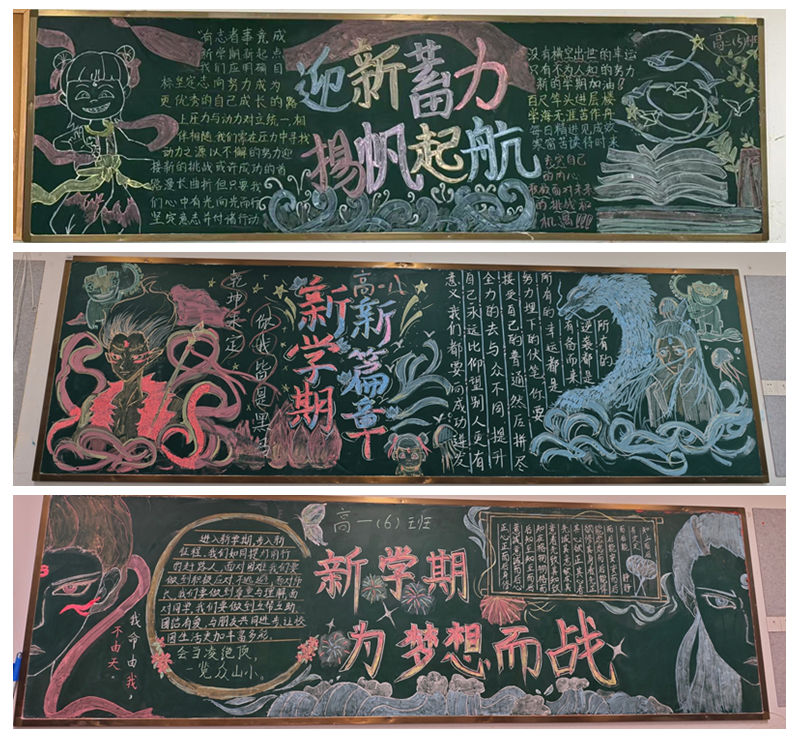 有志者事竟成
新学期新起点
我们应明确目
标坚定志向努力成为
更优秀的自己成长的路
上压力与动力对立统一,相
伴相随我们常在压力中寻找
动力之源以不懈的努力迎
接新的挑战或许成功的道
路漫长曲折但只要我
们心中有光向光而行
坚定意志并付诸行动
迎新蓄力
揚帆起航
高二(5)班
没有横空出世的幸运
只有不为人知的努力
新的学期加油!
百尺竿头进层楼
学海无涯苦作舟
每日精进见成效
寒窗苦读待时来
坚定自己
的内心
勇敢面对未来
的挑战和
机遇!!!
乾坤未定
你我皆是黑马
高一八
新学期
新篇章
所有的
逆袭都是
有备而来
所有的幸运都是
努力埋下的伏笔你要
接受自己的普通然后拼尽
全力的去与众不同提升
自己永远比仰望别人更有
意义我们都要向成功进发
我命由我,
不由天。
进入新学期,步入新
征程,我们如同携手同行
的赶路人,面对困难我们要
做到积极应对不逃避,面对师
长我们要做到尊重与理解面
对同学我们要做到互帮互助、
团结有爱,与朋友共同进步,让校
园生活更加丰富多彩。
会当凌绝顶,
览众山小。
高一(6)班
新学期
为梦想而战
知止而后
有定定
而后能
静静